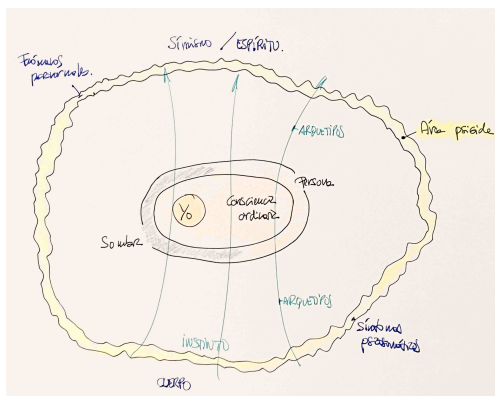 Sí mismo / ESPÍRITU.
Fenómenos
paranormales.
ARQUETIPOS
Área psicoide
Persona
Yo
Consciencia
ordinaria
Sombra
ARQUETIPOS
INSTINTO
Síntomas
psicosomáticos
CUERPO